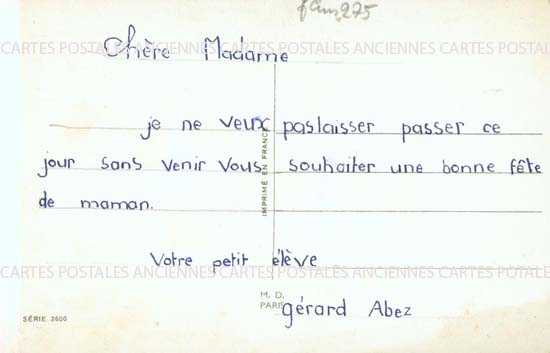 Chère Madame
je ne veux pas laisser passer ce
jour sans venir vous souhaiter une bonne fête
de maman.
Votre petit élève
gérard Abez
IMPRIMÉ EN FRANCE
M. D.
PARIS
SÉRIE 2600
CARTES POSTALES ANCIENNES CARTES POSTALES ANCIENNES CARTES POSTALES
CARTES POSTALES ANCIENNES CARTES POSTALES ANCIENNES CARTES POSTALES